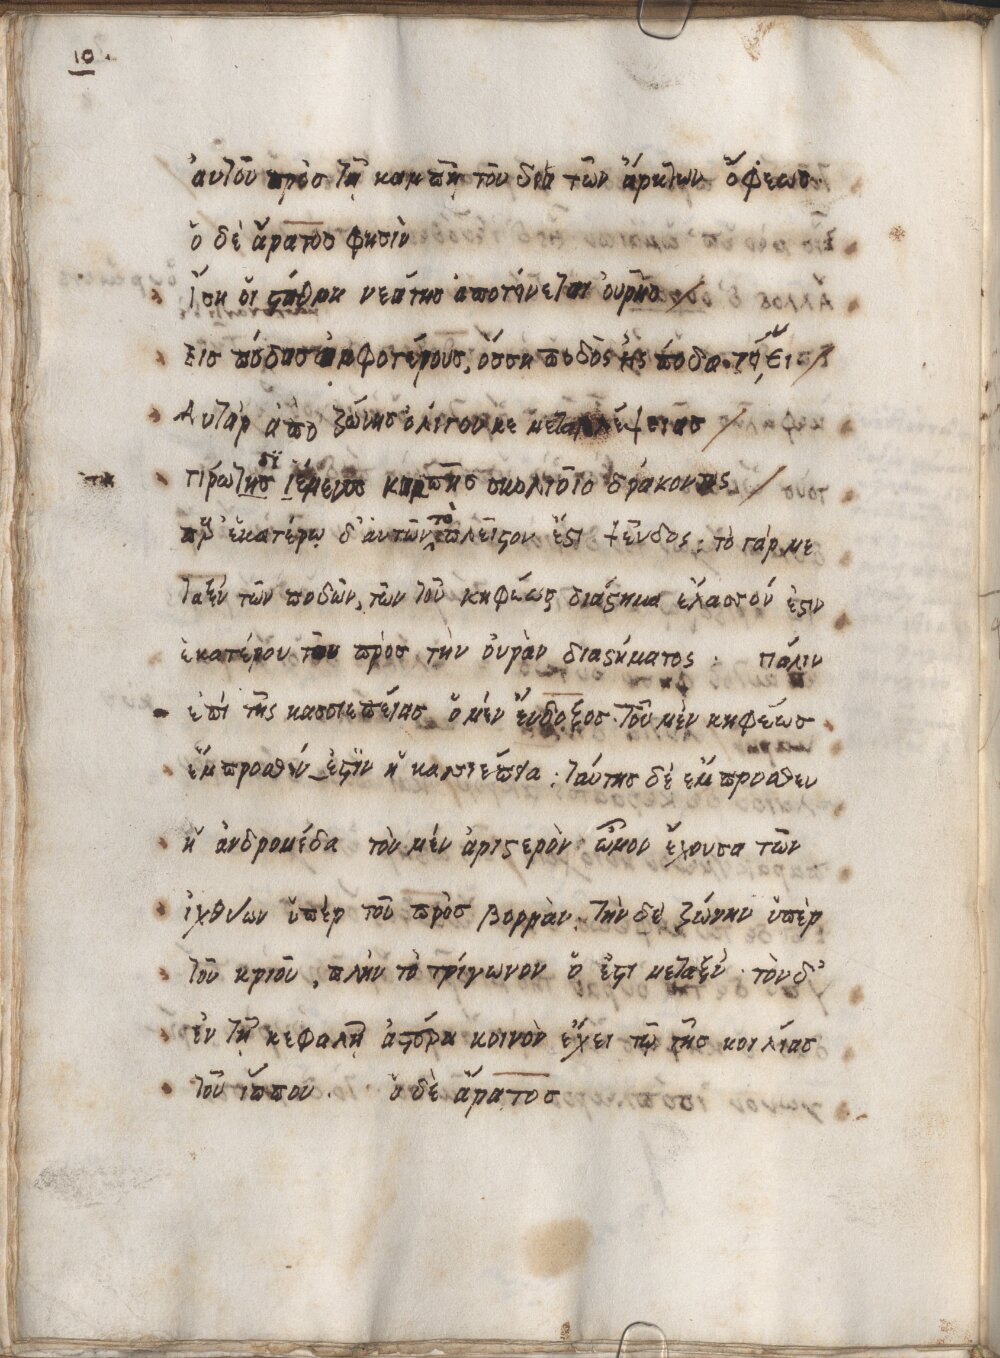 10.
ἀυτοῦ πρὸσ τῇ καμπῇ τοῦ διὰ τῶν ἄρκτων ὄφεωσ.
ὁ δὲ ἄρατοσ φησὶν
ἴση ὅι στάθμη νεάτησ ἀποτείνεται ὀυρῆσ
Εισ πόδασ ἀμφοτέρουσ, ὅσση ποδὸς ἠς πόδα τείνει
Αυτὰρ ἀπὸ ζώνησ ὀλίγον κε μεταβλέψειασ
πρώτησ ἱέμενοσ καμπῆσ σκολιοῖο δράκοντος
ἐκατέρω δ' ἀυτῶν τὸ πλεῖστον ἔστι ψεῦδος: τὸ γάρ με
ταξὺ τῶν ποδῶν, τῶν τοῦ κηφέως διάστημα ἔλασσόν ἐστιν
ἐκατέρου τῶν πρὸσ τὴν ὀυρὰν διαστήματος : πάλιν
ἐπὶ τῆς κασσιεπείασ ὁ μέν ἔυδοξοσ τοῦ μὲν κηφέωσ
ἔμπροσθέν ἐστὶν ἡ κασσιέπεια : ταύτησ δὲ ἔμπροσθεν
ἡ ἀνδρομέδα τὸν μέν ἀριστερὸν ὦμον ἔχουσα τῶν
ἰχθύων ὑπέρ τοῦ πρὸσ βορρὰν. τὴν δὲ ζώνην ὑπὲρ
τοῦ κριοῦ, πλὴν τὸ τρίγωνον ὅ ἐστι μεταξύ. τὸν δ'
ἐν τῇ κεφαλῇ ἀστέρα κοινὸν ἔχει τῷ τῆσ κοιλίασ
τοῦ ἵππου. ὁ δὲ ἄρατοσ